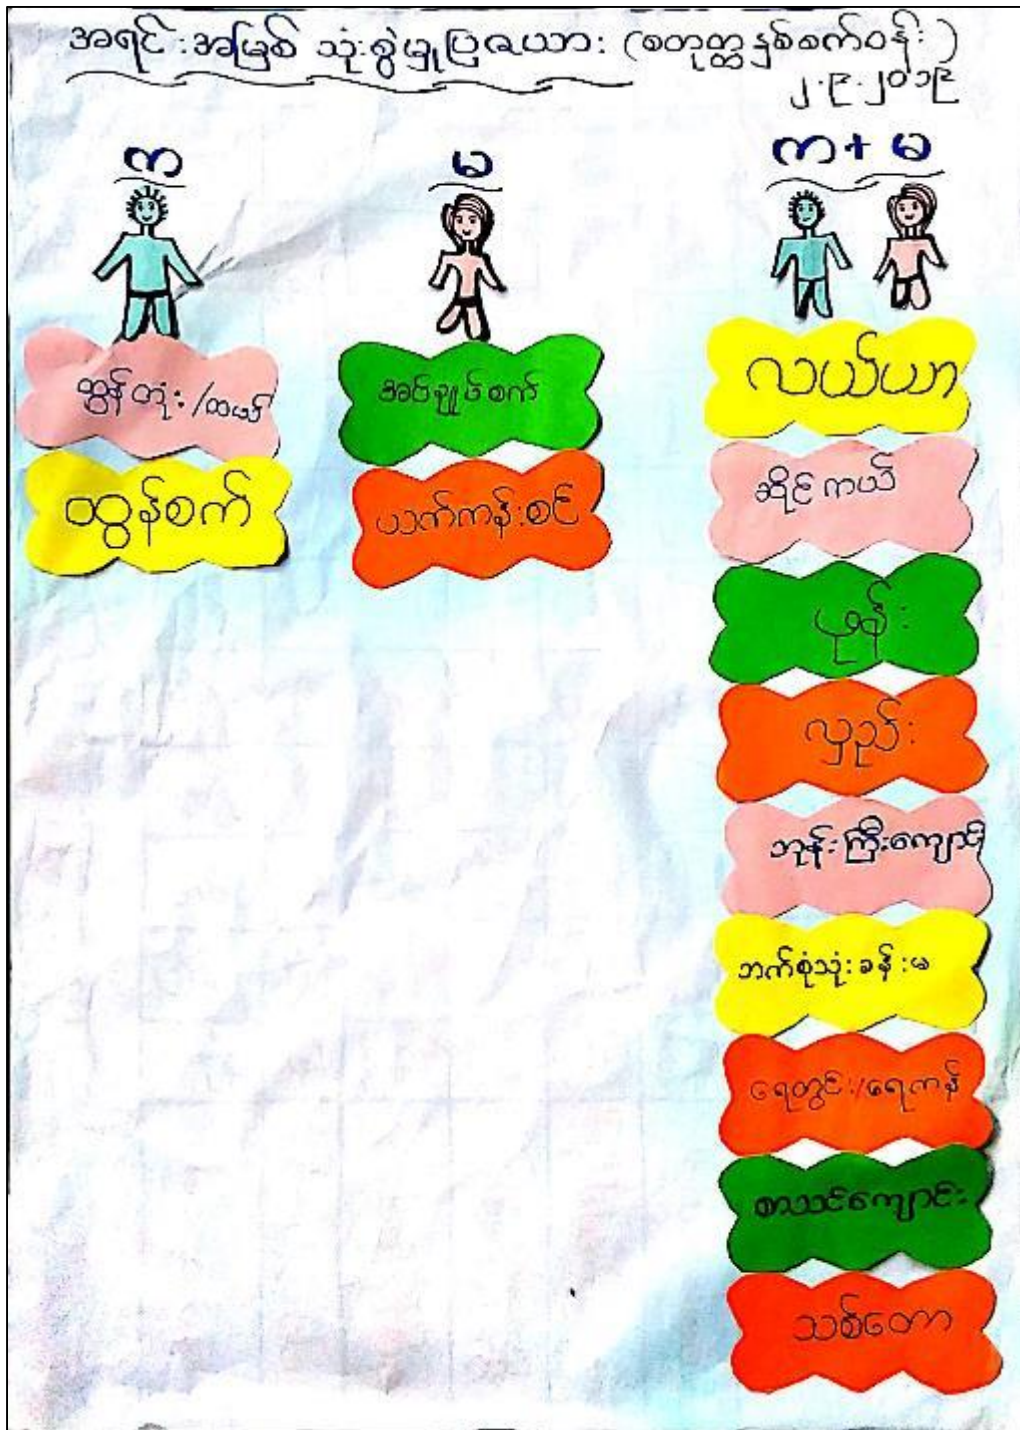 အရင်းအမြစ် သုံးစွဲမှုပြဇယား (စတုတ္ထနှစ်စက်ဝန်း)
၂.၉.၂၀၁၉
က
မ
က+မ
ထွန်တုံး/ထယ်
ထွန်စက်
အပ်ချုပ်စက်
ယက်ကန်းစင်
လယ်ယာ
ဆိုင်ကယ်
ဖုန်း
လှည်း
ဘုန်းကြီးကျောင်
ဘက်စုံသုံးခန်းမ
ရေတွင်း/ရေကန်
စာသင်ကျောင်း
သစ်တော